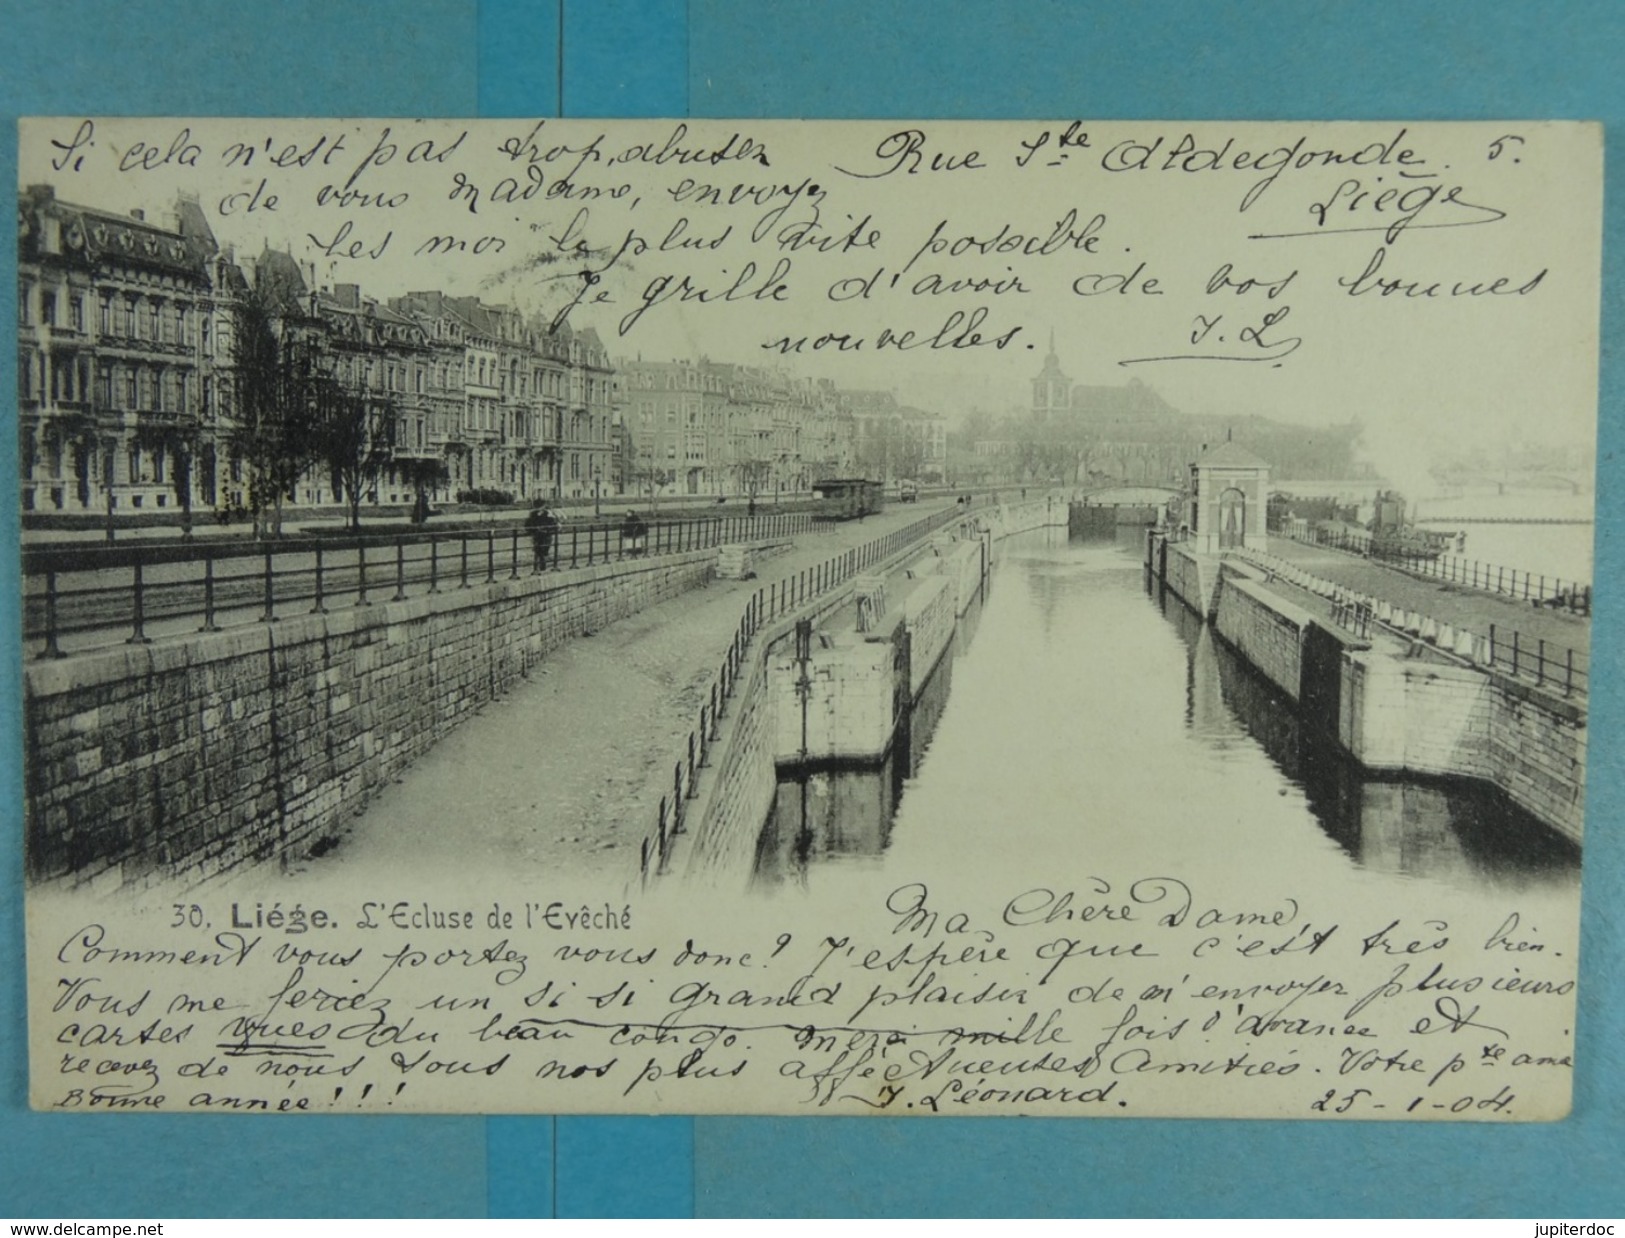 Si cela n'est pas trop, abuser
de vous Madame, envoyez
les moi le plus vite possible.
Je grille d'avoir de vos bonnes
nouvelles. J. L.
Rue Ste Aldegonde. 5.
Liège
30. Liége. L'Ecluse de l'Evêché
Ma Chère Dame,
Comment vous portez vous donc? J'espère que c'est très bien.
Vous me feriez un si si grand plaisir de m'envoyer plusieurs
cartes vues du beau congo. Merci mille fois d'avance et
recevez de nous tous nos plus affectueuses Amitiés. Votre pte amie
Bonne année!!! J. Léonard. 25-1-04.
www.delcampe.net
jupiterdoc